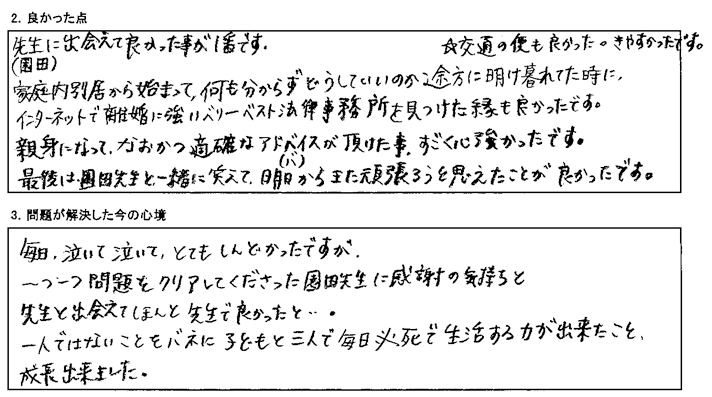 2. 良かった点
先生に出会えて良かった事が1番です。 ☆交通の便も良かった。きやすかったです。
(園田)
家庭内別居から始まって、何も分からずどうしていいのか途方に明け暮れてた時に、
インターネットで離婚に強いベリーベスト法律事務所を見つけた縁も良かったです。
親身になって、なおかつ適確なアドバイスが頂けた事、すごく心強かったです。
(バ)
最後は園田先生と一緒に笑えて、明日からまた頑張ろうを思えたことが良かったです。
3. 問題が解決した今の心境
毎日、泣いて泣いて、とてもしんどかったですが、
一つ一つ問題をクリアしてくださった園田先生に感謝の気持ちと
先生と出会えてほんと先生で良かったと…。
一人ではないことをバネに子どもと三人で毎日必死で生活する力が出来たこと、
成長出来ました。